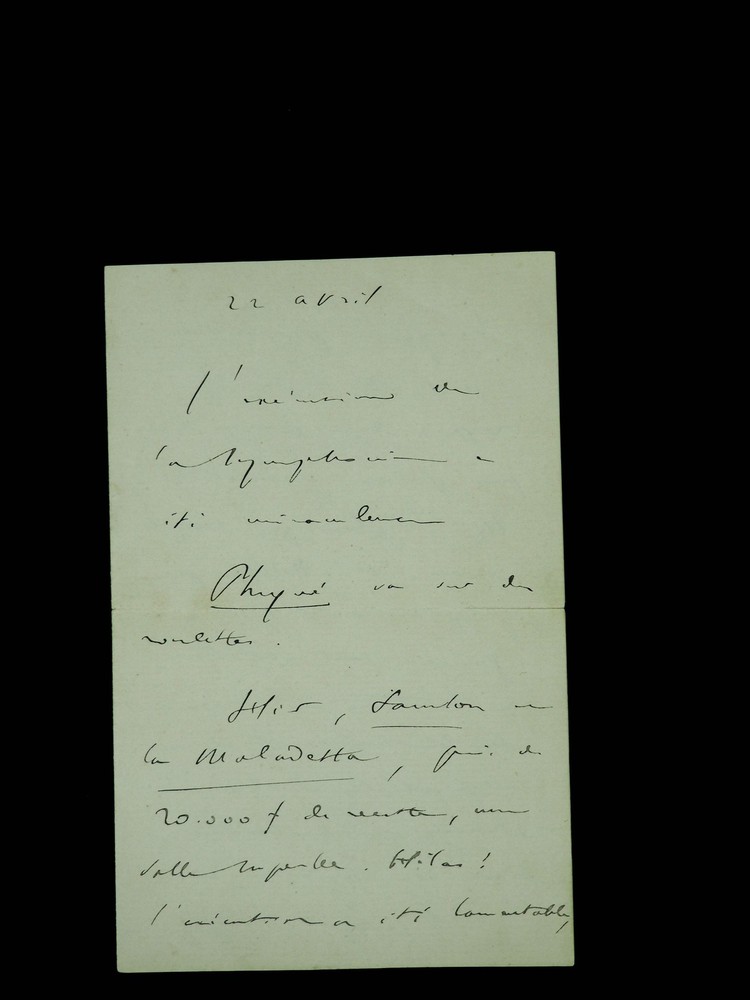 22 avril
L'exécution de
la symphonie a
été miraculeuse
Phryné va sur des
roulettes.
Hier, Samson et
la Maladetta, près de
20.000 f de recette, une
salle superbe. Hélas!
l'exécution a été lamentable,